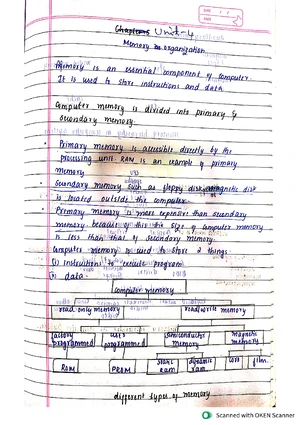 Unit-4
Memory organization
Memory is an essential component of computer
It is used to store instructions and data
Computer memory is divided into primary &
secondary memory.
Primary memory is accessible directly by the
processing unit RAM is an example of primary
memory
Secondary memory such as floppy disk, magnetic disk
is located outside the computer
Primary memory is more expensive than secondary
memory because of this the size of computer memory
is less than that of secondary memory
Computer memory is used to store 2 things
(i) instructions to execute program
(ii) data
Computer memory
read only memory
read/write memory
factory programmed
user programmed
semiconductor memory
magnetic memory
ROM
PROM
static ram
dynamic ram
core
film
different types of memory
Scanned with OKEN Scanner